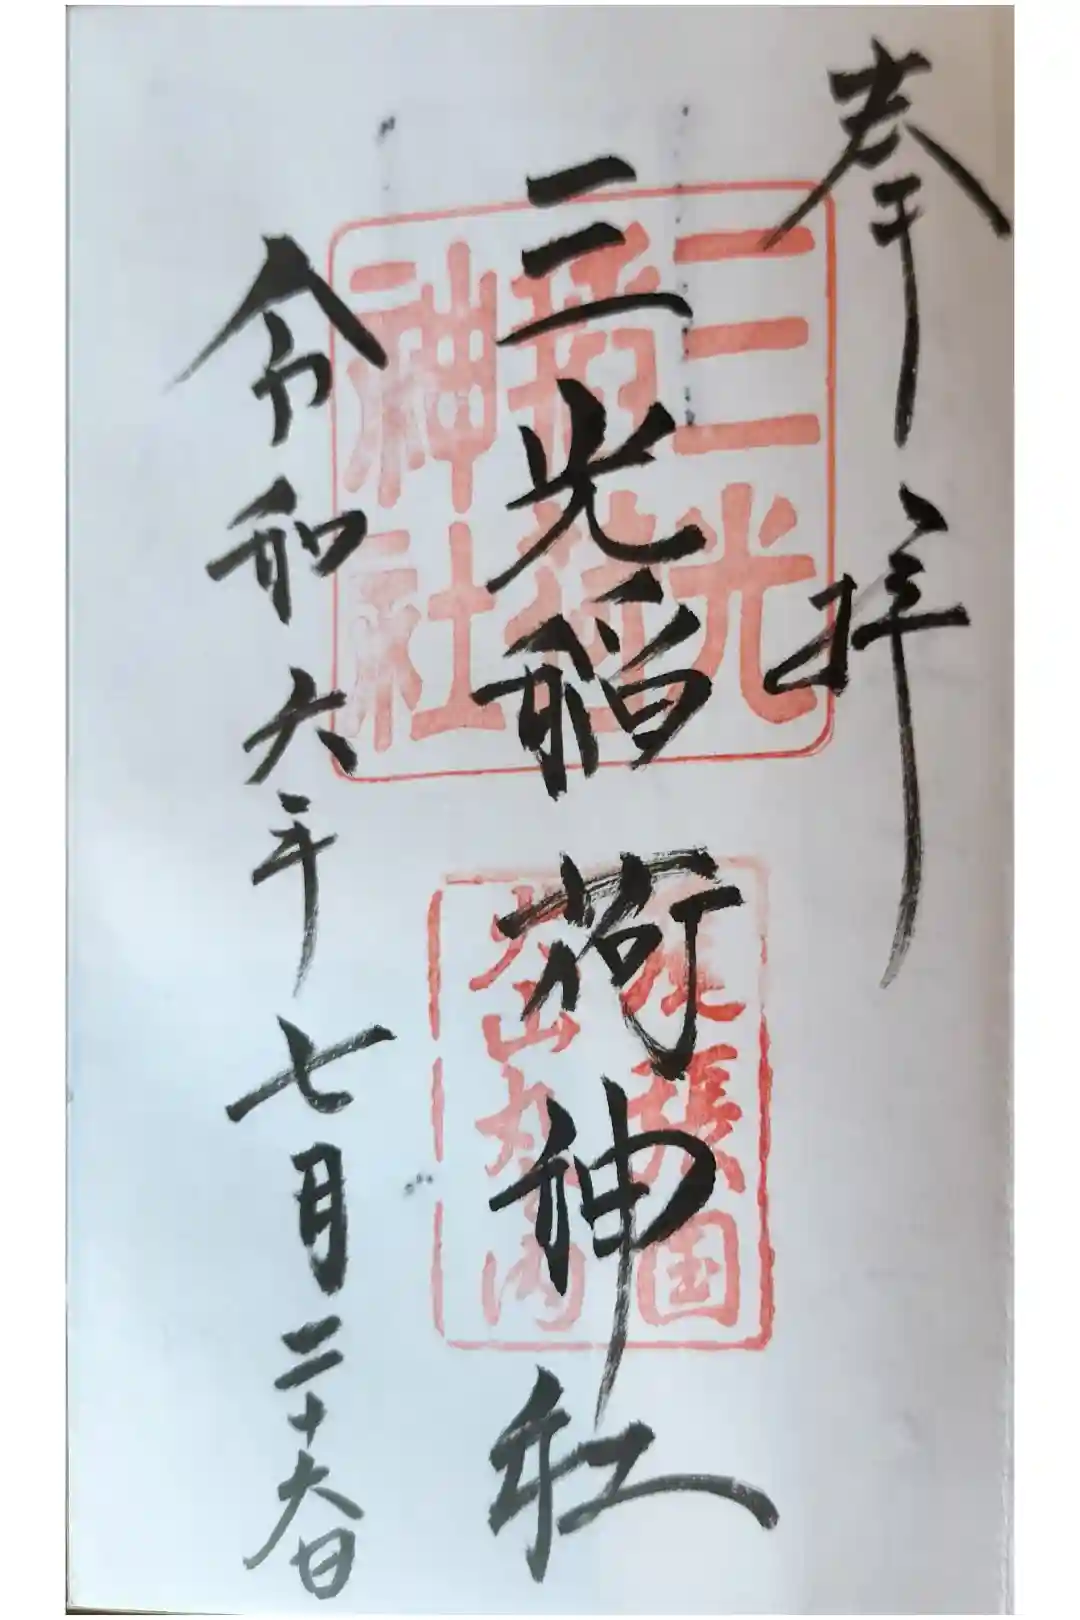 奉拝
三光稲荷神社
令和六年七月二十六日
三光
稲荷
神社
尾張国
犬山丸の内